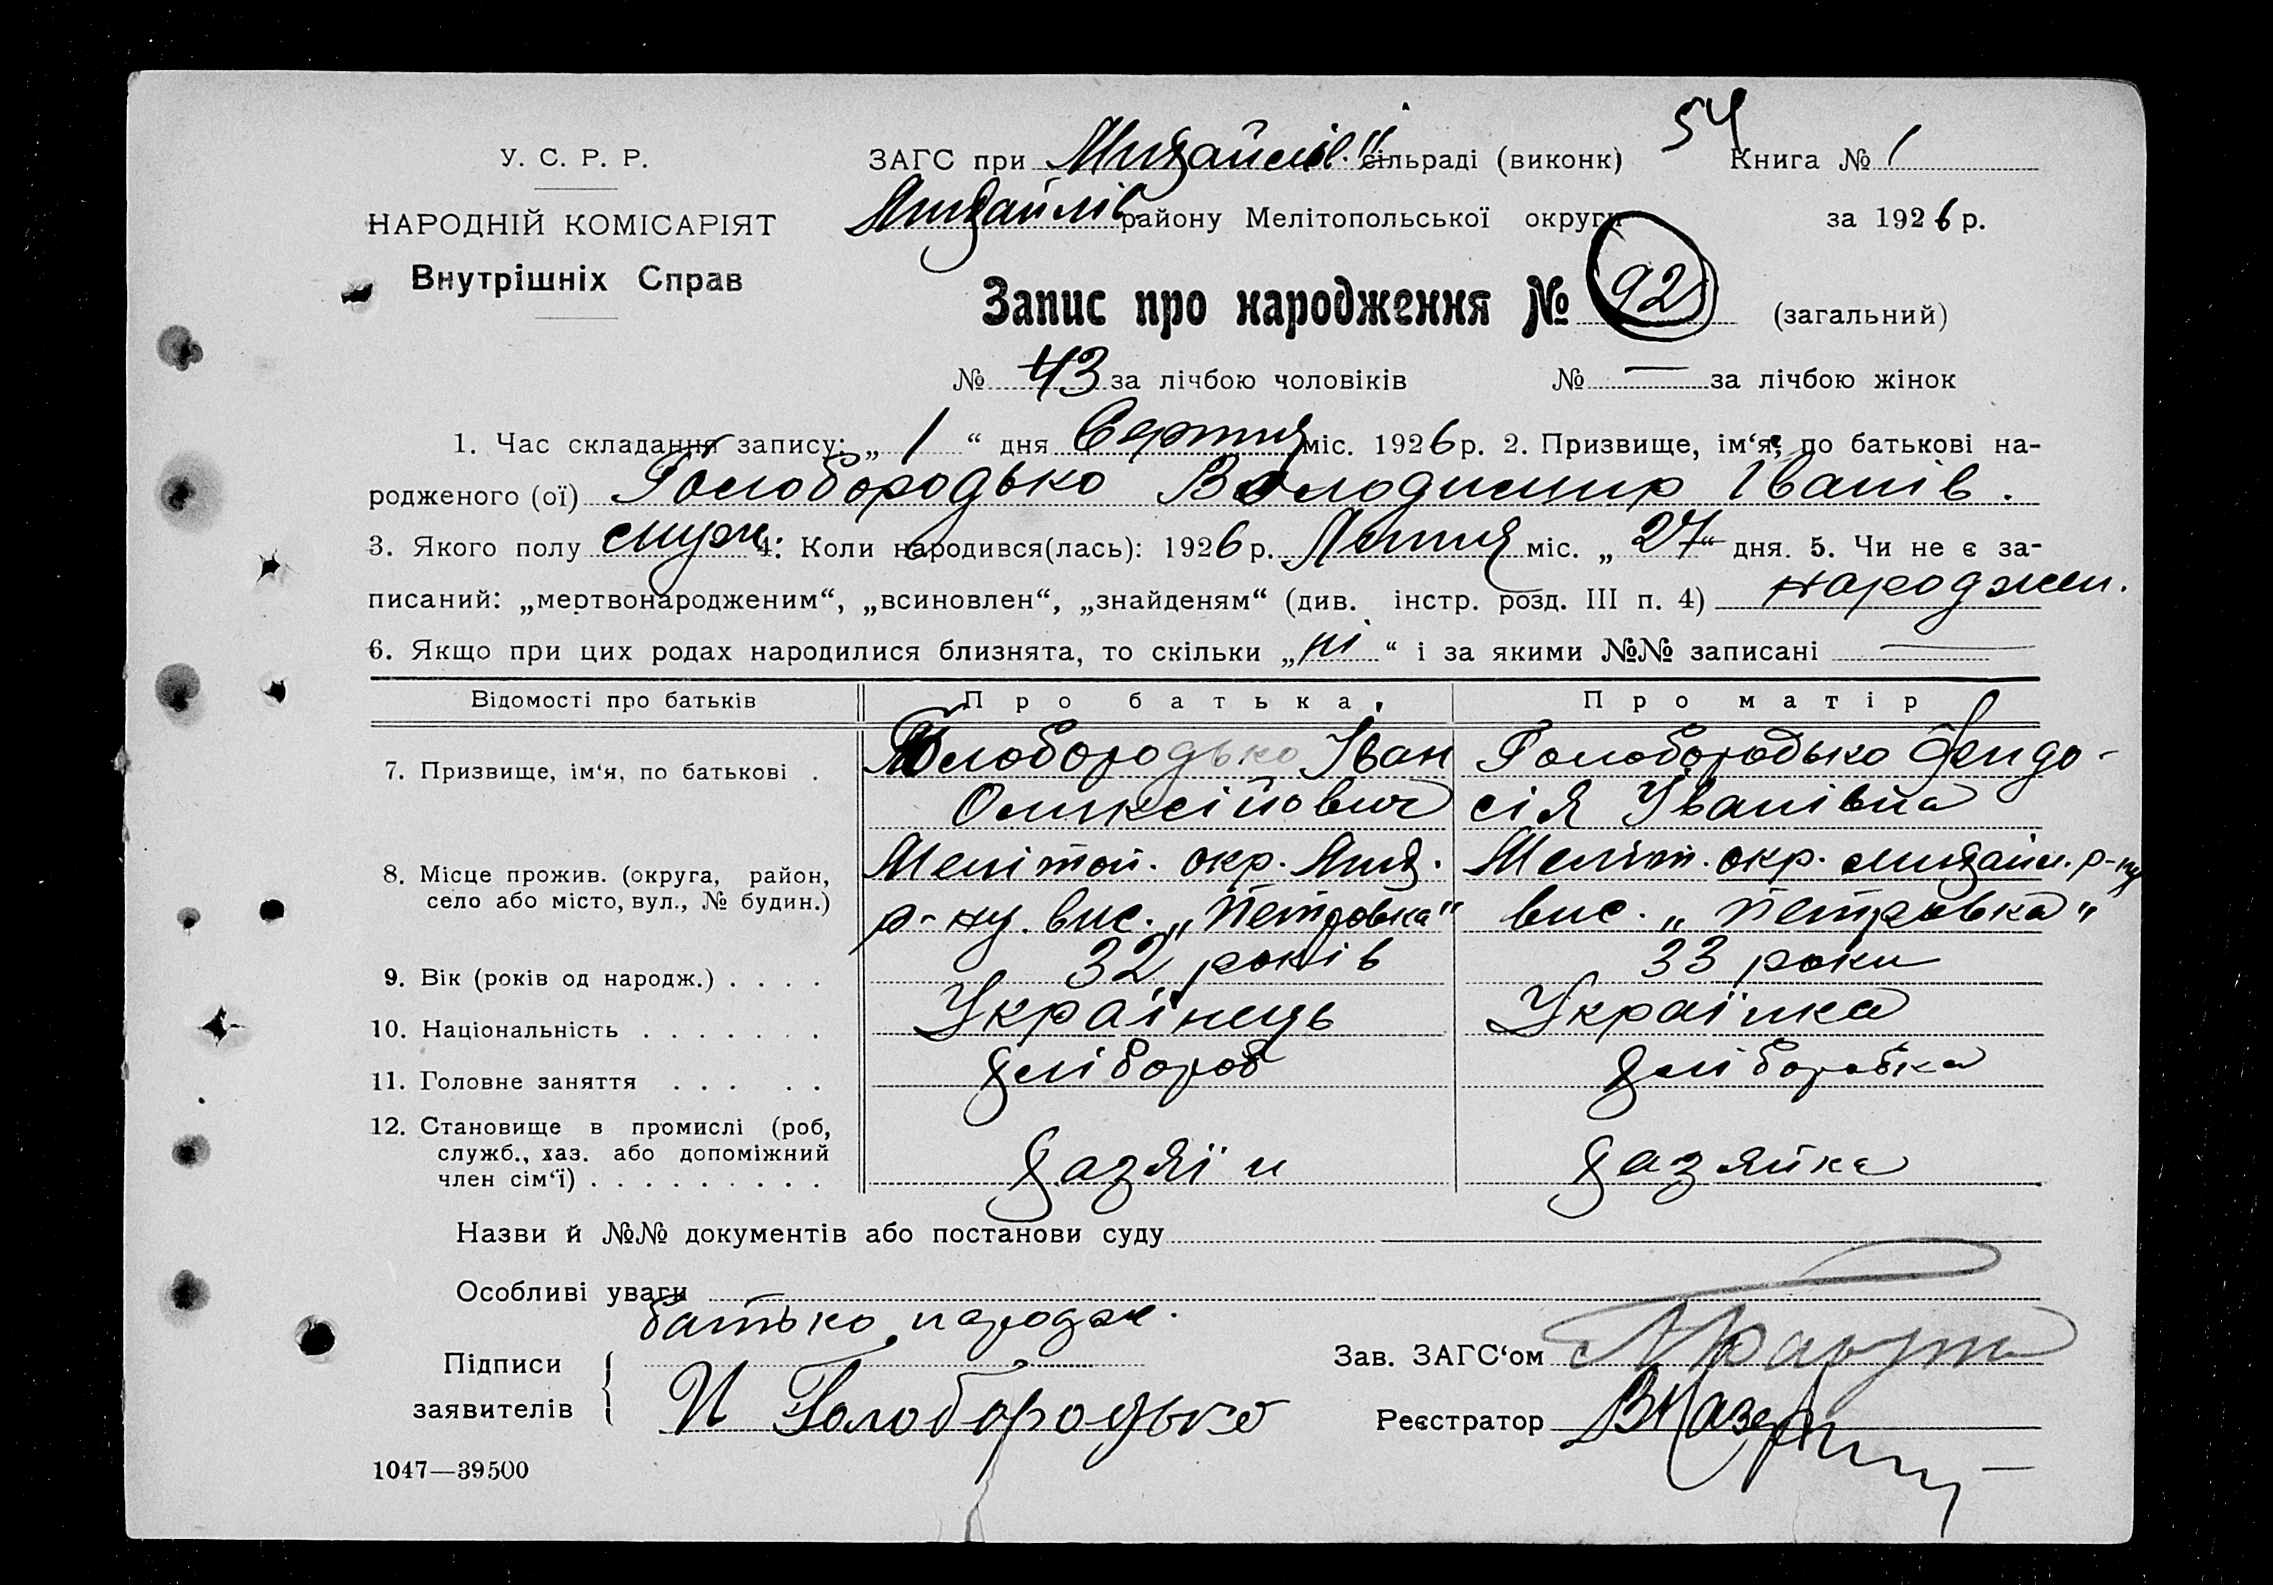 54
У. С. Р. Р.
ЗАГС при Михайлів. сільраді (виконк) Книга № 1
Михайлів району Мелітопольської округи за 1926 р.
НАРОДНІЙ КОМІСАРІЯТ
Внутрішніх Справ
Запис про народження № 92 (загальний)
№ 43 за лічбою чоловіків № — за лічбою жінок
1. Час складання запису: „ 1 “ дня Серпня міс. 1926 р. 2. Призвище, ім‘я, по батькові на-
родженого (ої) Голобородько Володимир Іванів.
3. Якого полу муж. 4. Коли народився(лась): 1926 р. Липня міс. „ 27 “ дня. 5. Чи не є за-
писаний: „мертвонародженим“, „всиновлен“, „знайденям“ (див. інстр. розд. III п. 4) народжен.
6. Якщо при цих родах народилися близнята, то скільки „ ні “ і за якими №№ записані —
Відомості про батьків Про батька. Про матір
7. Призвище, ім‘я, по батькові . Голобородько Іван Голобородько Фендо-
Оликсійович сія Іванівна
8. Місце прожив. (округа, район, Мелітоп. окр. Мих. Меліт. окр. михайл. р-ну
село або місто, вул., № будин.) р-ну. вис. „Петровка“ вис. „Петровка“
9. Вік (років од народж.) . . . . 32 років 33 роки
10. Національність . . . . . . . Українець Українка
11. Головне заняття . . . . . хлібороб хліборобка
12. Становище в промислі (роб,
служб., хаз. або допоміжний
член сім‘ї) . . . . . . . . . хазяїн хазяйка
Назви й №№ документів або постанови суду —
Особливі уваги
батько народж.
Підписи
заявителів И Голобородько
Зав. ЗАГС‘ом
Реєстратор
1047—39500